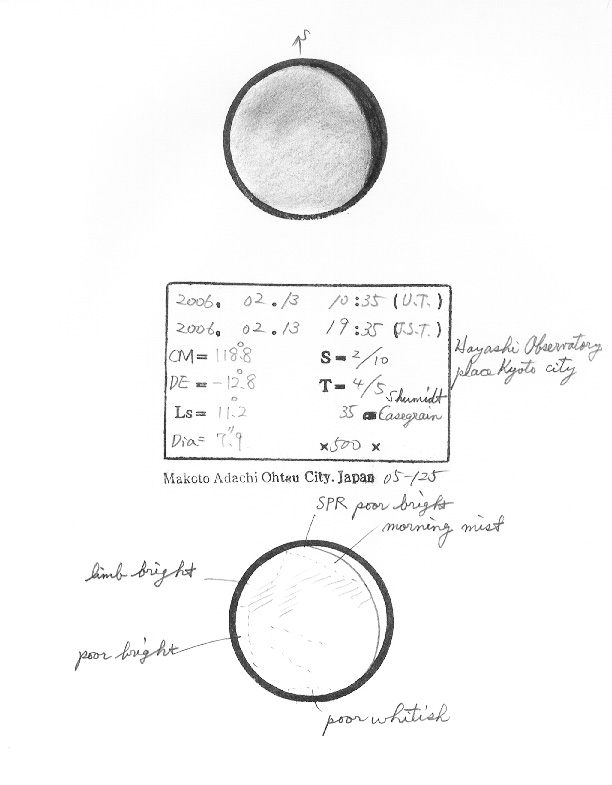 S
2006. 02.13 10:35 (U.T.)
2006. 02.13 19:35 (J.S.T.)
CM= 118.8° S=2/10
DE =-12.8° T=4/5
Ls= 11.2° 35 Shumidt Casegrain
Dia= 7.9" ×500 ×
Hayashi Observatory
place Kyoto city
Makoto Adachi Ohtsu City. Japan 05-125
SPR poor bright
morning mist
limb bright
poor bright
poor whitish